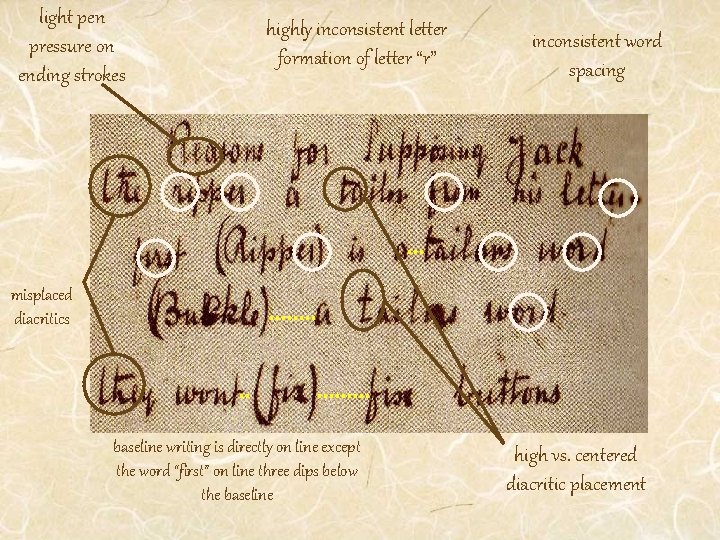 light pen
pressure on
ending strokes
highly inconsistent letter
formation of letter “r”
inconsistent word
spacing
Reasons for Supposing Jack
the ripper a tailor from his letters
first (Ripper) is a tailors word
(Buckle) a tailors word.
they wont (fix) fix buttons
misplaced
diacritics
baseline writing is directly on line except
the word “first” on line three dips below
the baseline
high vs. centered
diacritic placement